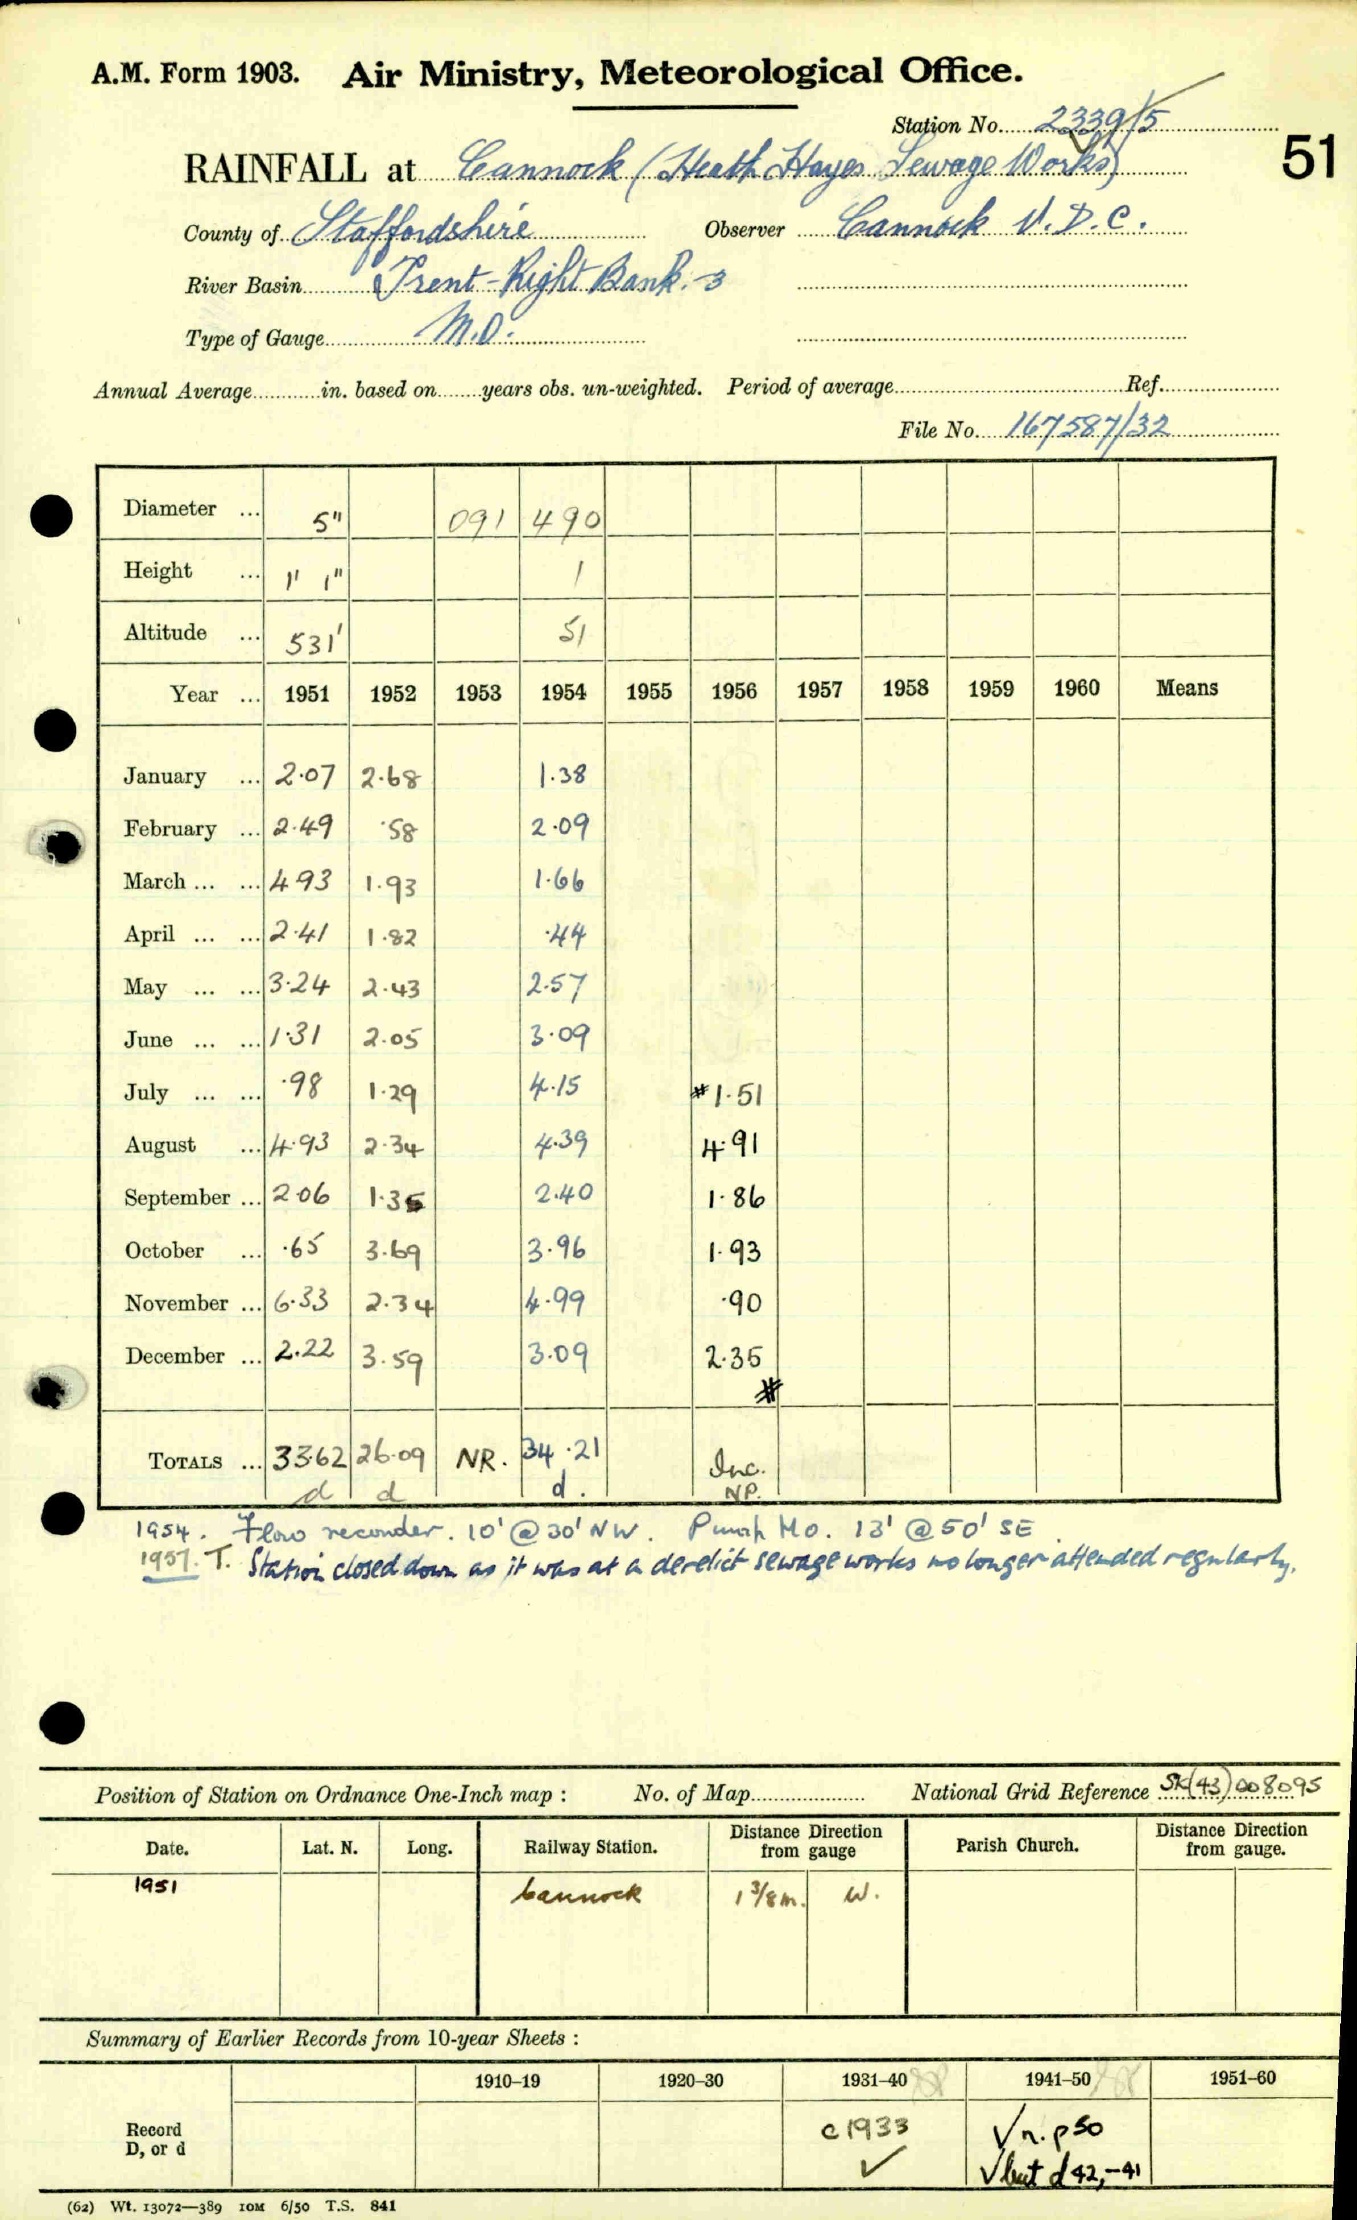 A.M. Form 1903. Air Ministry, Meteorological Office.
Station No. 2339/5
51
RAINFALL at Cannock (Heath Hayes Sewage Works)
County of Staffordshire Observer Cannock U.D.C.
River Basin Trent - Right Bank. - 3
Type of Gauge M.O.
Annual Average in. based on years obs. un-weighted. Period of average Ref.
File No. 167587/32
Diameter ... 5" 091 490
Height ... 1' 1" 1
Altitude ... 531' 51
Year ... 1951 1952 1953 1954 1955 1956 1957 1958 1959 1960 Means
January ... 2.07 2.68 1.38
February ... 2.49 .58 2.09
March ... ... 4.93 1.93 1.66
April ... ... 2.41 1.82 .44
May ... ... 3.24 2.43 2.57
June ... ... 1.31 2.05 3.09
July ... ... .98 1.29 4.15 #1.51
August ... 4.93 2.34 4.39 4.91
September ... 2.06 1.35 2.40 1.86
October ... .65 3.69 3.96 1.93
November ... 6.33 2.34 4.99 .90
December ... 2.22 3.59 3.09 2.35
#
TOTALS ... 33.62 26.09 NR. 34.21 Inc.
d d d. NP.
1954. Flow recorder. 10' @ 30' NW. Pump Ho. 13' @ 50' SE
1957. T. Station closed down as it was at a derelict sewage works no longer attended regularly.
Position of Station on Ordnance One-Inch map : No. of Map National Grid Reference SK(43)008095
Date. Lat. N. Long. Railway Station. Distance from Direction gauge Parish Church. Distance from Direction gauge.
1951 Cannock 1 3/8 m. W.
Summary of Earlier Records from 10-year Sheets :
1910–19 1920–30 1931–40 1941–50 1951–60
Record D, or d c1933 ✓ √ n.p 50
√ but d 42,-41
(62) Wt. 13072—389 10M 6/50 T.S. 841